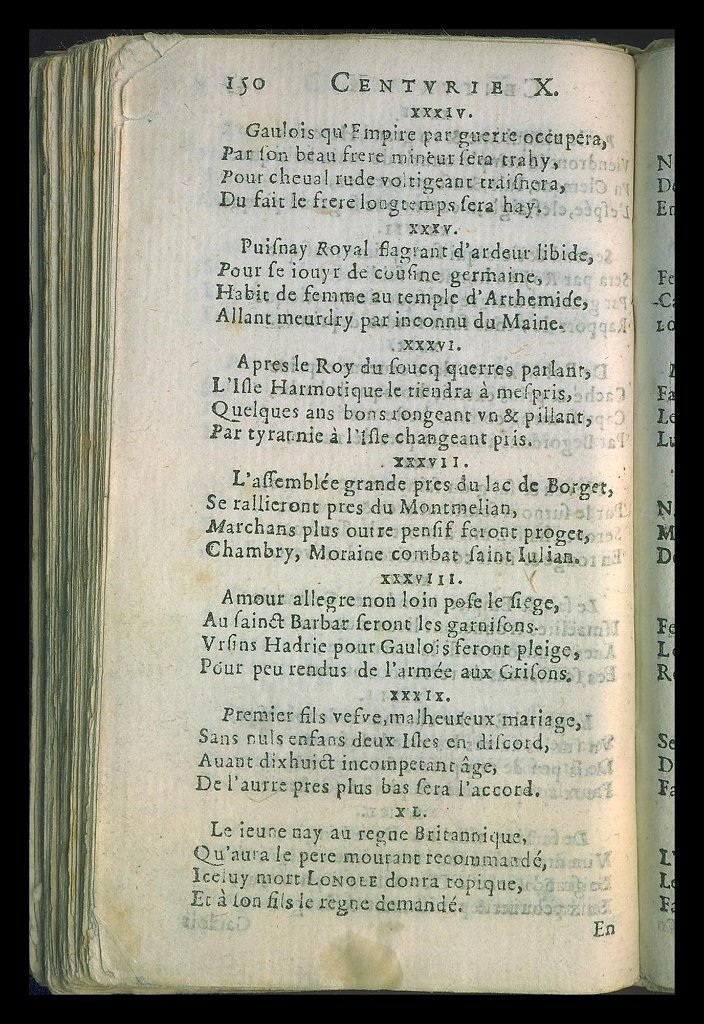 150 CENTVRIE X.
XXXIV.
Gaulois qu'Empire par guerre occupera,
Par ſon beau frere mineur ſera trahy,
Pour cheual rude voltigeant traiſnera,
Du fait le frere longtemps ſera hay.
XXXV.
Puiſnay Royal flagrant d'ardeur libide,
Pour ſe iouyr de couſine germaine,
Habit de femme au temple d'Arthemide,
Allant meurdry par inconnu du Maine.
XXXVI.
Apres le Roy du ſoucq querres parlant,
L'Iſle Harmotique le tiendra à meſpris,
Quelques ans bons rongeant vn & pillant,
Par tyrannie à l'iſle changeant pris.
XXXVII.
L'aſſemblée grande pres du lac de Borget,
Se rallieront pres du Montmelian,
Marchans plus outre penſif feront proget,
Chambry, Moraine combat ſaint Iulian.
XXXVIII.
Amour allegre non loin poſe le ſiege,
Au ſainct Barbar ſeront les garniſons.
Vrſins Hadrie pour Gaulois feront pleige,
Pour peu rendus de l'armée aux Griſons.
XXXIX.
Premier fils veſve, malheureux mariage,
Sans nuls enfans deux Iſles en diſcord,
Auant dixhuict incompetant âge,
De l'autre pres plus bas ſera l'accord.
XL.
Le ieune nay au regne Britannique,
Qu'aura le pere mourant recommandé,
Iceluy mort LONOLE donra topique,
Et à ſon fils le regne demandé.
En
N
De
En
Fe
-Ca
Lo
Fa
Le
Lu
N
M
De
Fe
Le
R
Se
D
Fa
L'
Le
Fa